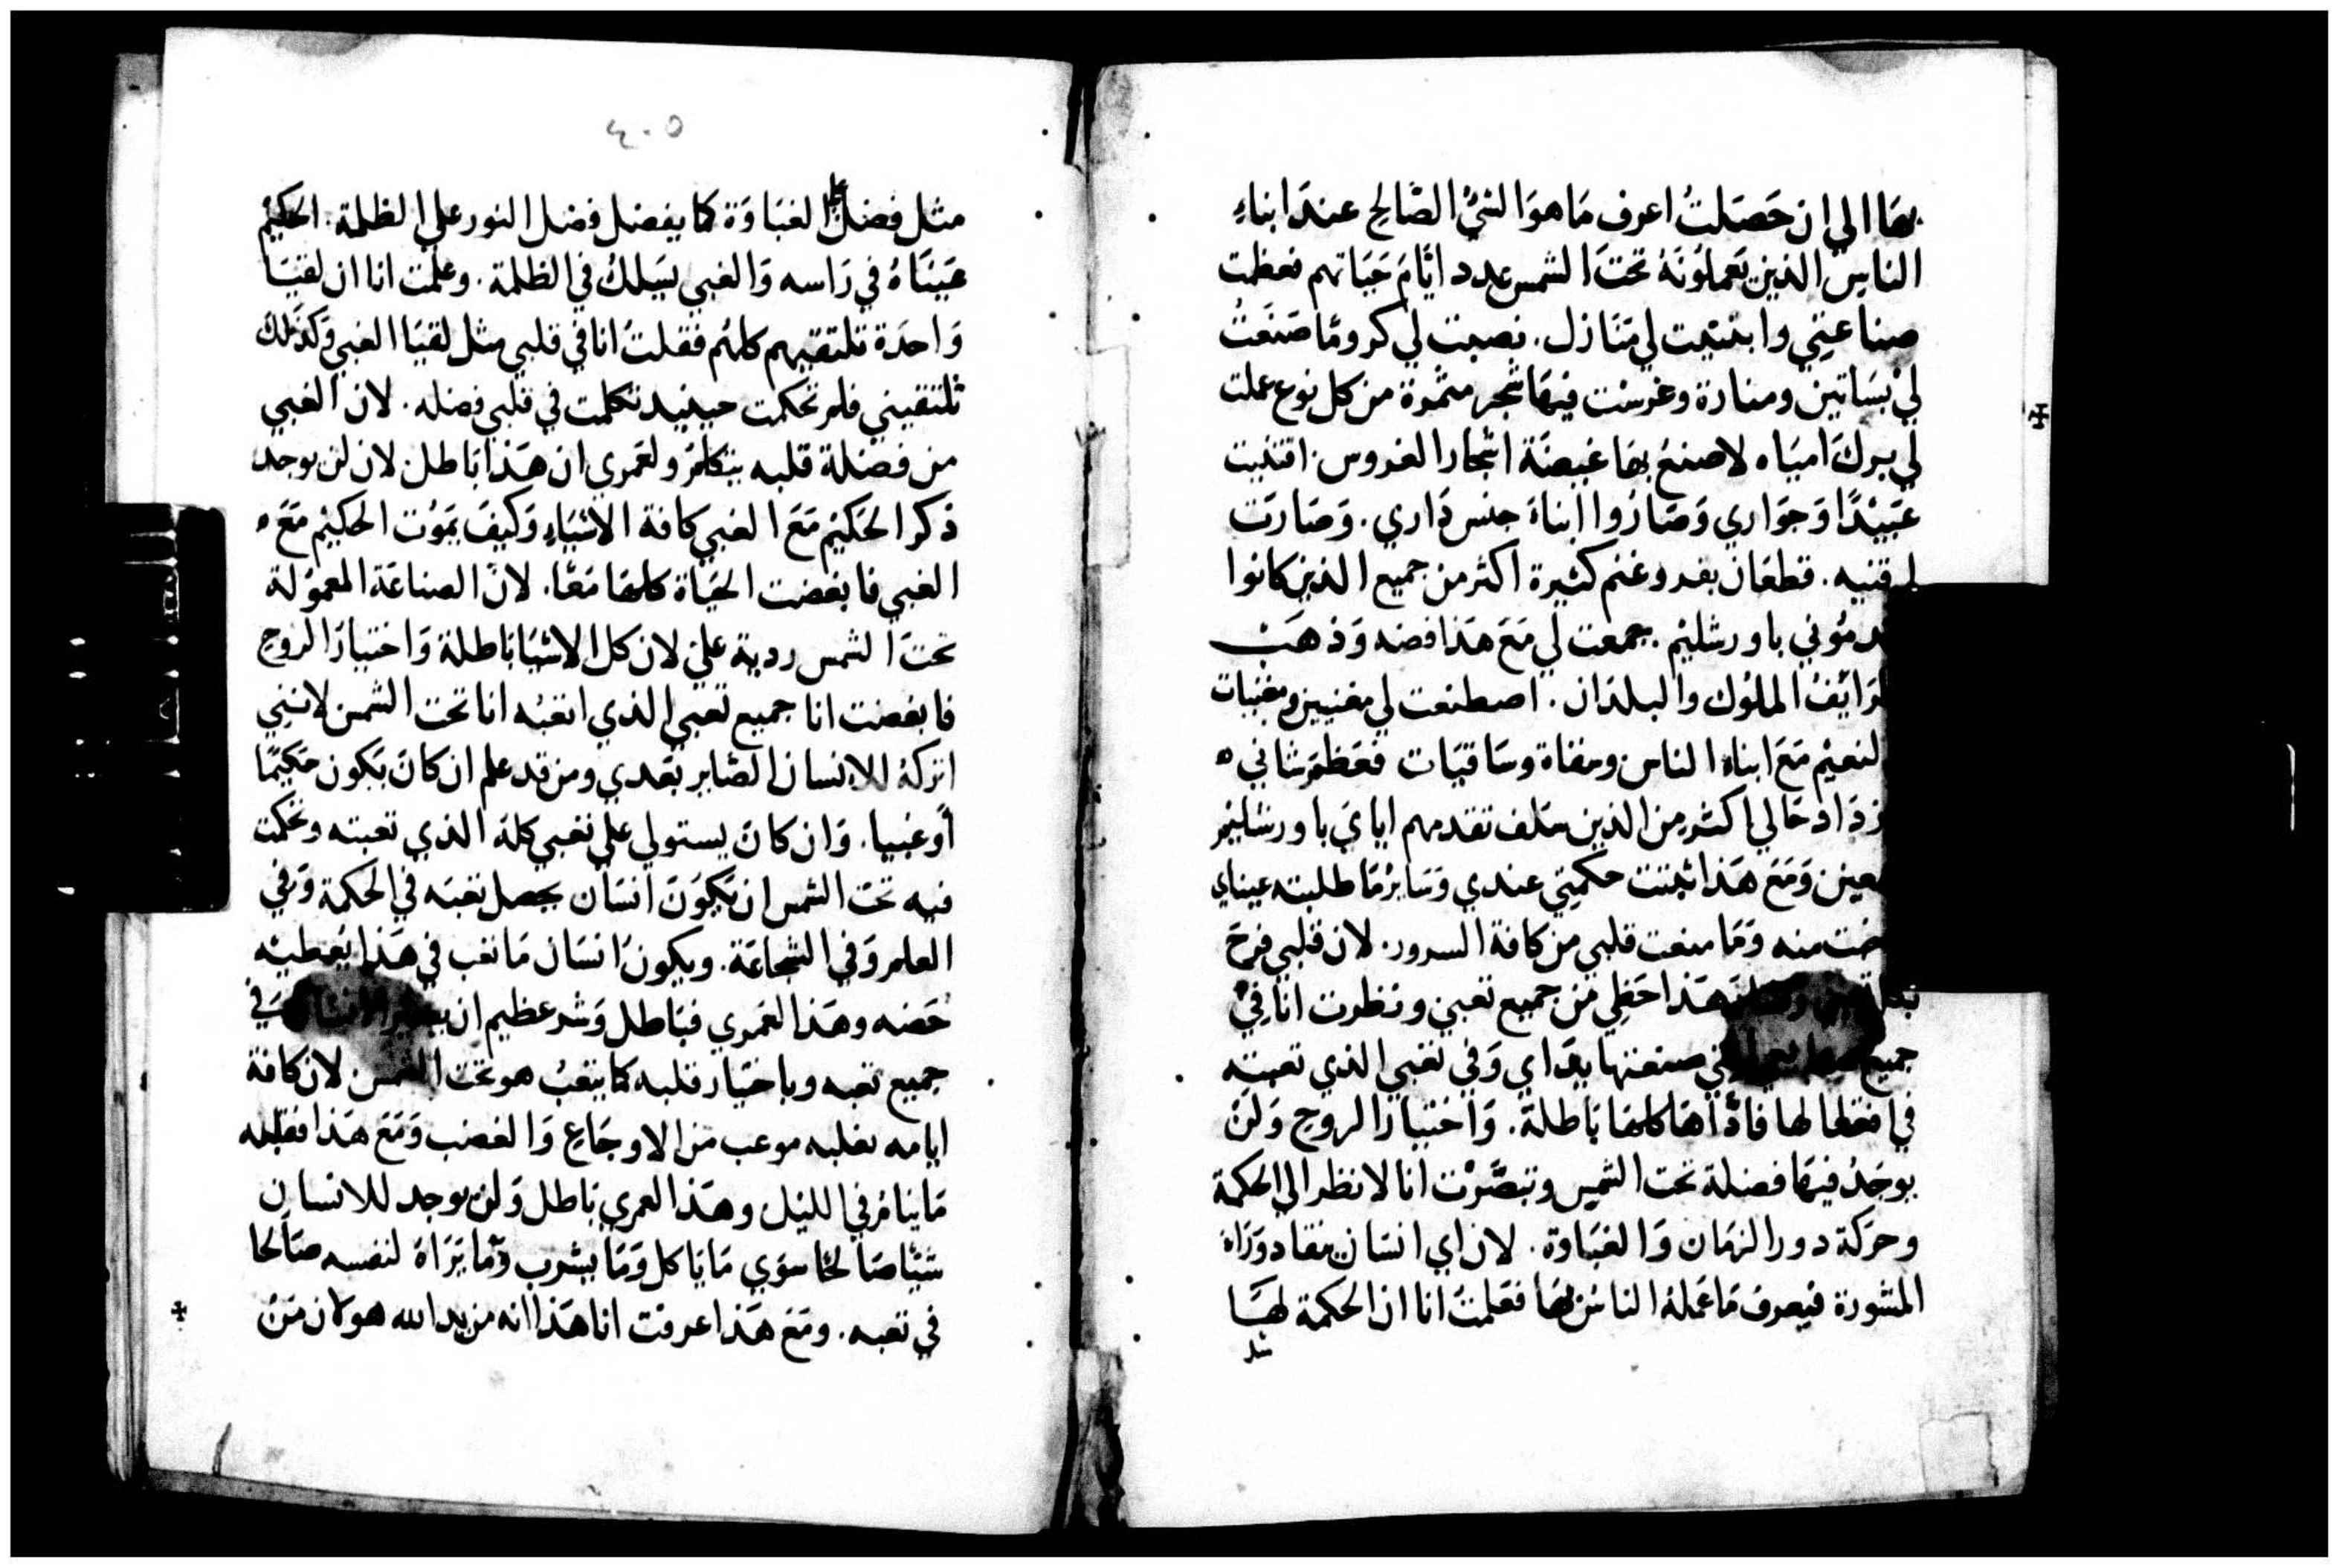 بها الي ان حَصَلتُ اعرف مَا هوَ الشيُ الصَّالح عندَ ابناءِ
الناسِ الذين يَعملوُنَهُ تحتَ الشمس عدد ايَّامَ حَيَاتهم فعظمت
صناعتِي وابتنيت لي مَنَازل. نصبت لي كرومًا صَنَعَتُ
لي بسَاتين ومنارة وغرسْت فيهَا شجر مثمرة من كل نوع عملت
لي بركَ امياه لاصنعُ بها غيضَة اشجار الغروس. اقتنيت
عَبيْدًا وَجَوَاري وَصَارُوا ابناءَ جنس دَاري. وَصَارَت
لي قنيه. قطعَان بقر وغنم كثيرة اكثر من جميع الذين كانوا
مُوني باورشليْم. جمعت لي مَعَ هَذا فضه وَذهَبْ
المُلوُك والبلدَان. اصطنعت لي مغنيين ومغنيات
لنعيْم مَعَ ابناءِ الناس وسقاة وسَاقيَات فعَظمَ شاني ه
زدَاد حَالي اكثر من الذين سَلف تقدمهم ايايَ باورشليْم
وَمَعَ هَذا ثبتت حكمتِي عندي وَسَايرُ مَا طلبته عيناي
منه وَمَا منعت قلبي من كافة السرور. لان قلبي فرحَ
هَذا حَظي من جميع تعبي ونظرت انا فِيْ
جميع صنعتها يدَاي وَفي تعبي الذي تعبته
في افتعالها فاذَا هَا كلها بَاطلة. وَاختيَار الروح وَلن
يوجَدُ فيهَا فضلة تحت الشمس وتبصَّرْت انا لانظر الي الحكمة
وحرَكة دور الزمَان وَالغبَاوة. لان اي انسَان ينقاد وَرَاءَ
المشورة فيعرف مَا عَملهُ الناسُ بهَا فعَلمتُ انا ان الحكمة لهَا
٤٠٥
مثل فضل علي الغبَاوَة كما يفضل فضل النور علي الظلمة. الحكيْم
عَيْنَاهُ في رَاسه وَالغبي يَسلكُ في الظلمة. وعلمت انا ان لقيَا
وَاحدَة تلتقيهم كلهُم فقلتُ انا في قلبي مثل لقيَا الغبي وَكذلكَ
تلتقيني فلمَ تحكمت حينيد تكلمت في قلبي فضله. لان الغبي
من فضلة قلبه يتكلمُ ولعَمري ان هَذا بَاطل لان لن يوجد
ذكر الحَكيْم مَعَ الغبي كافة الاشيَاءِ وَكيفَ يمَوُت الحكيْم مَعَ ه
الغبي فابغضت الحَيَاة كلهَا مَعًا. لانَ الصناعَة المعموُلة
تحتَ الشمس رديَة عليَ لان كل الاشيَا بَاطلة وَاختيَارَ الروح
فابغضت انا جميع تعبي الذي اتعبُه انا تحت الشمس لانني
اتركهُ للانسان الصَاير بَعدي ومن قد علم ان كانَ يَكون حَكيْمًا
أو غبيا. وَان كانَ يستولي علي تعبي كله الذي تعبته وتحكمت
فيه تحتَ الشمس ان يَكوُنَ انسَان يحصل تعبَه في الحكمة وَفي
العلم وَفي الشجاعَة. ويكونُ انسَان مَا تعب في هَذا يُعطيْه
حَضه وهَذا لعَمري فبَاطل وَشر عظيم ان وَفي
جميع تعبه وباختيَار قلبه كما يتعبُ هو تحت الشمس لان كافة
ايامه بقلبه موعب من الاوجَاع وَالغضب وَمَعَ هَذا فقلبه
مَا ينامُ في الليْل وهَذا لعمري بَاطل وَلن يوجد للانسان
شيْئا صَالحًا سوَي مَا يَاكل وَمَا يشرب وَمَا يَرَاهُ لنفسه صَالحا
في تعبه. ومَعَ هَذا عرفت انا هَذا انه من يد الله هو لان مَنْ